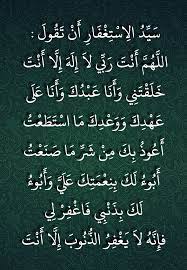 سَيِّدُ الِاسْتِغْفَارِ أَنْ تَقُولَ :
اللَّهُمَّ أَنْتَ رَبِّي لَا إِلَهَ إِلَّا أَنْتَ
خَلَقْتَنِي وَأَنَا عَبْدُكَ وَأَنَا عَلَى
عَهْدِكَ وَوَعْدِكَ مَا اسْتَطَعْتُ
أَعُوذُ بِكَ مِنْ شَرِّ مَا صَنَعْتُ
أَبُوءُ لَكَ بِنِعْمَتِكَ عَلَيَّ وَأَبُوءُ
لَكَ بِذَنْبِي فَاغْفِرْ لِي
فَإِنَّهُ لَا يَغْفِرُ الذُّنُوبَ إِلَّا أَنْتَ